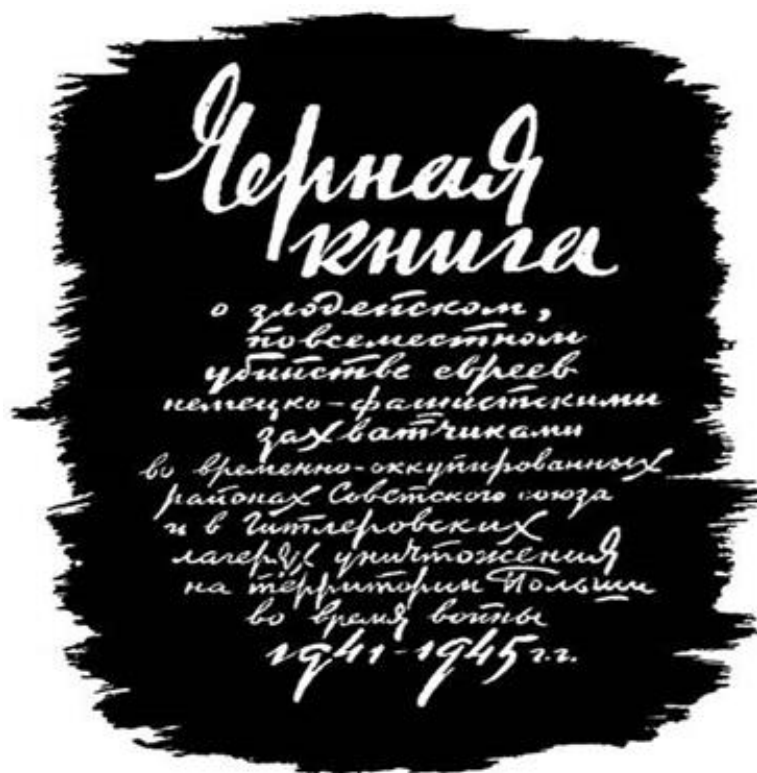 Черная
книга
о злодейском,
повсеместном
убийстве евреев
немецко-фашистскими
захватчиками
во временно-оккупированных
районах Советского союза
и в гитлеровских
лагерях уничтожения
на территории Польши
во время войны
1941-1945 г.г.